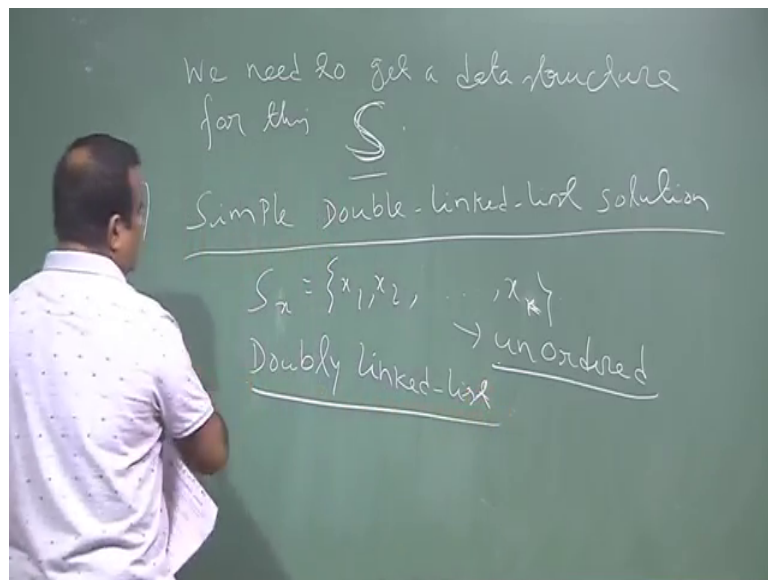 We need to get a data structure
for this S.
) Simple Double-linked-list solution
Sₓ = {x₁, x₂, ..., xₖ}
→ unordured
Doubly linked-list